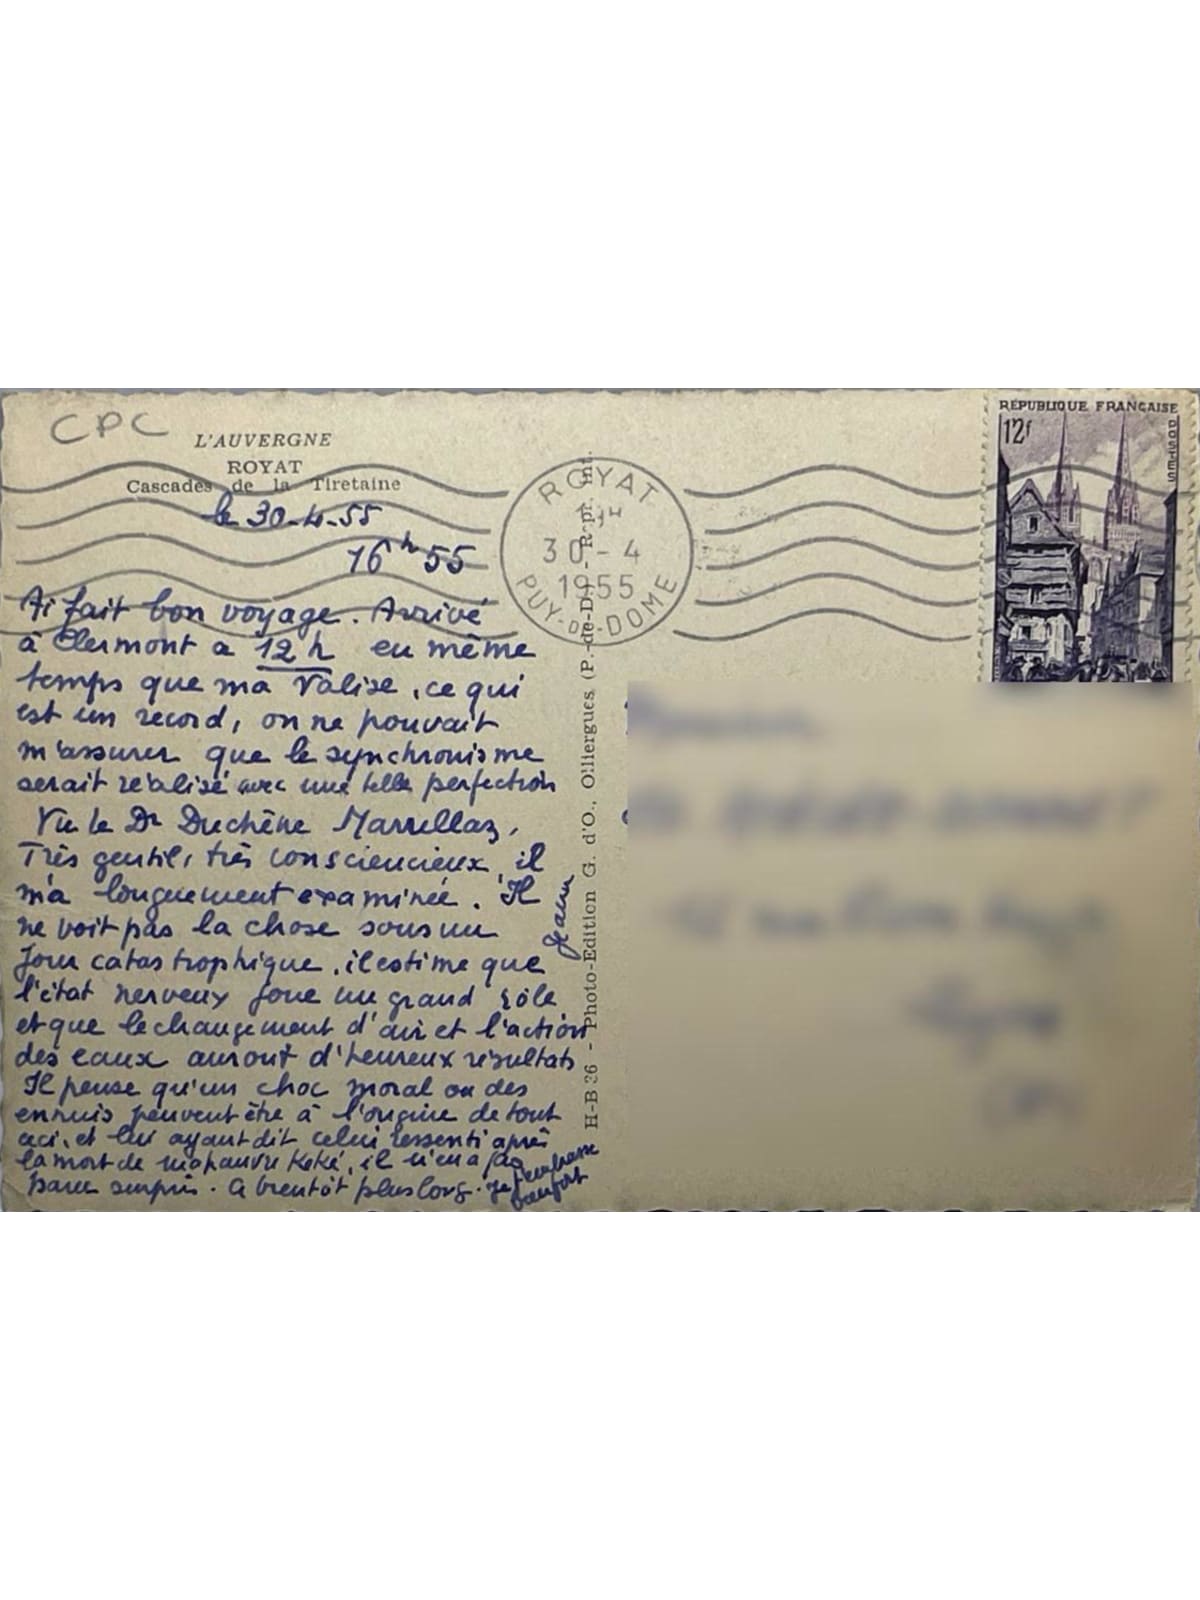 CPC
L'AUVERGNE
ROYAT
Cascades de la Tiretaine
le 30-4-55
16h 55
Ai fait bon voyage. Arrivé
à Clermont a 12 h en même
temps que ma valise, ce qui
est un record, on ne pouvait
m'assurer que le synchronisme
serait réalisé avec une telle perfection
Vu le Dr Duchêne Marullaz,
Très gentil, très consciencieux, il
m'a longuement examinée. Il
ne voit pas la chose sous un
jour catastrophique, il estime que
l'état nerveux joue un grand rôle
et que le changement d'air et l'action
des eaux auront d'heureux résultats
Il pense qu'un choc moral ou des
ennuis peuvent être à l'origine de tout
ceci, et lui ayant dit celui ressenti après
la mort de ma pauvre Kéké, il n'en a pas
paru surpris. A bientôt plus long. Je t'embrasse
bien fort
ROYAT
30-4
1955
PUY-DE-DOME
H-B 26 - Photo-Edition G. d'O., Olliergues (P.-de-D.) - Repr. int.
RÉPUBLIQUE FRANÇAISE
12f
POSTES